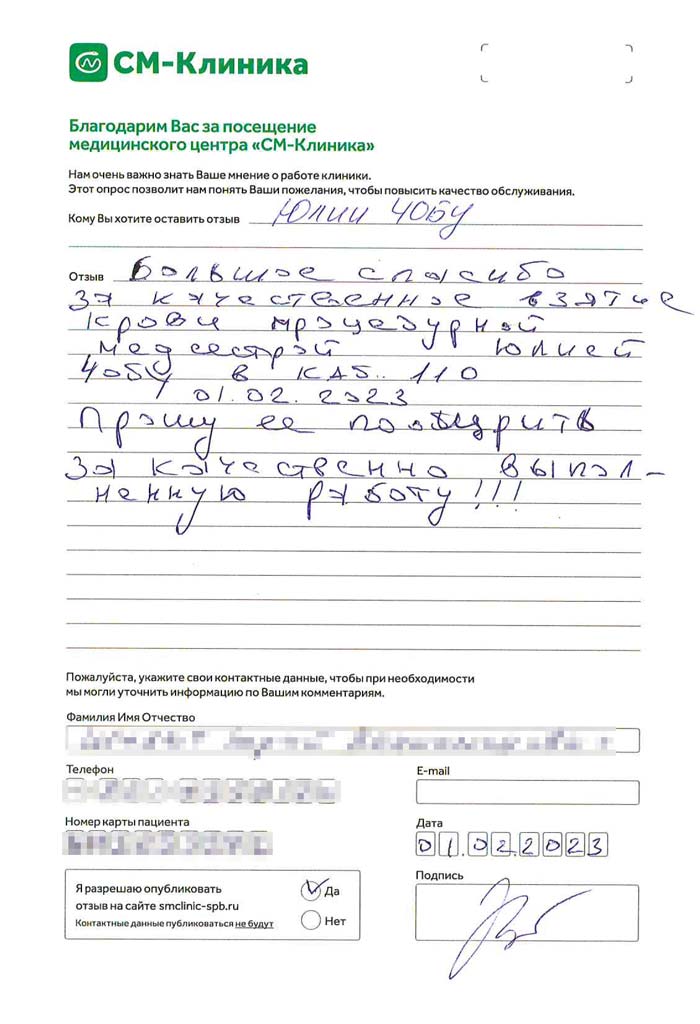 СМ-Клиника
Благодарим Вас за посещение
медицинского центра «СМ-Клиника»
Нам очень важно знать Ваше мнение о работе клиники.
Этот опрос позволит нам понять Ваши пожелания, чтобы повысить качество обслуживания.
Кому Вы хотите оставить отзыв Юлии Чобу
Отзыв Большое спасибо
за качественное взятие
крови процедурной
медсестрой Юлией
Чобу в каб. 110
01.02.2023
Прошу ее поощрить
за качественно выпол-
ненную работу!!!
Пожалуйста, укажите свои контактные данные, чтобы при необходимости
мы могли уточнить информацию по Вашим комментариям.
Фамилия Имя Отчество
Телефон
E-mail
Номер карты пациента
Дата
01.02.2023
Я разрешаю опубликовать
отзыв на сайте smclinic-spb.ru
Контактные данные публиковаться не будут
Да
Нет
Подпись